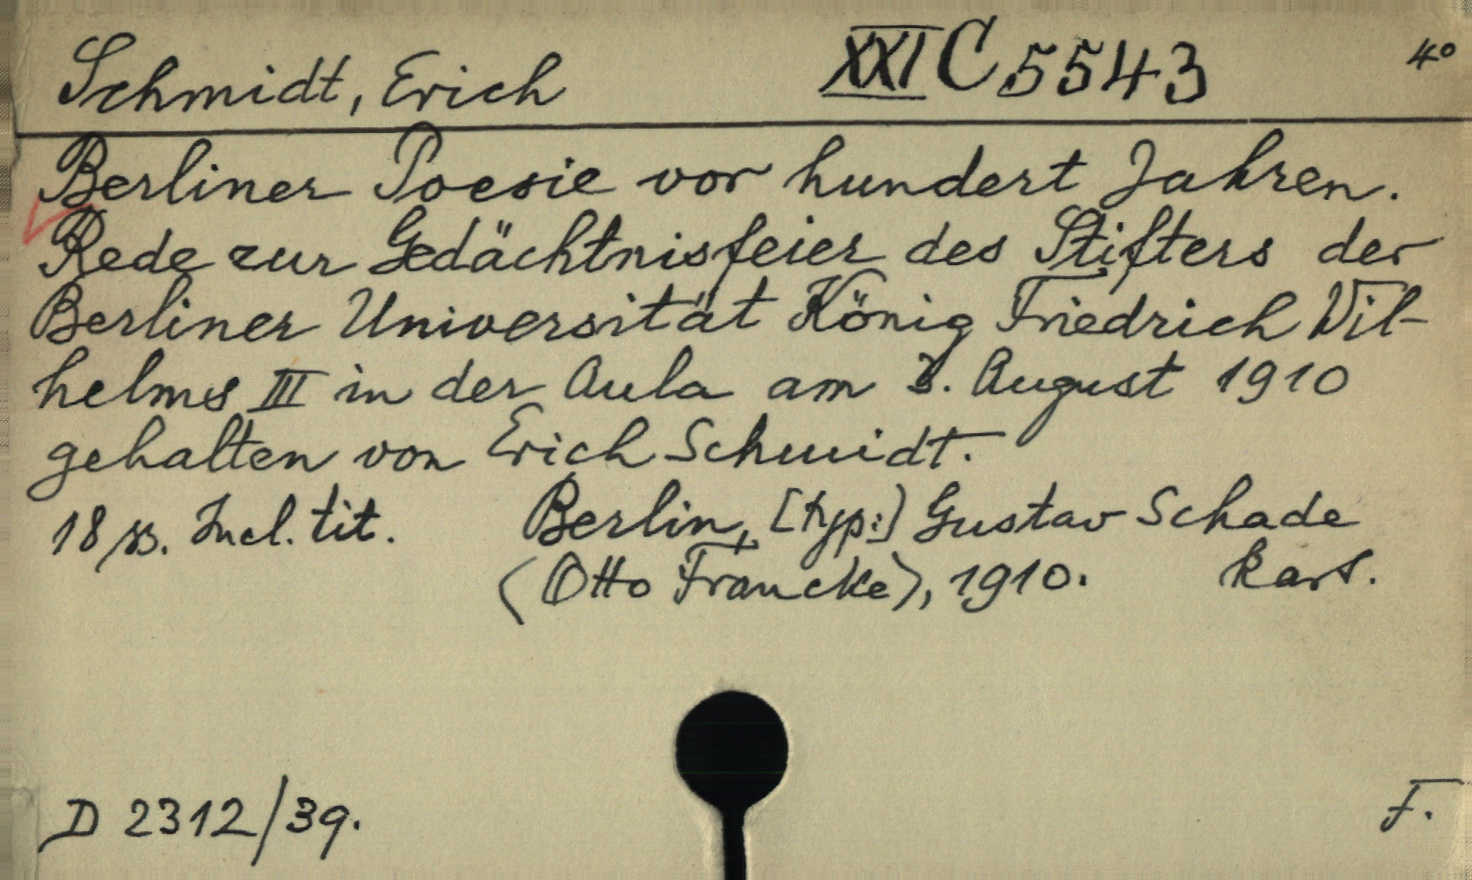 Schmidt, Erich XXI C 5543 4°
Berliner Poesie vor hundert Jahren.
Rede zur Gedächtnisfeier des Stifters der
Berliner Universität König Friedrich Wil-
helms III in der Aula am 3. August 1910
gehalten von Erich Schmidt.
18 ss. Incl. tit. Berlin, [typ:] Gustav Schade
(Otto Francke), 1910. kart.
D 2312/39. F.